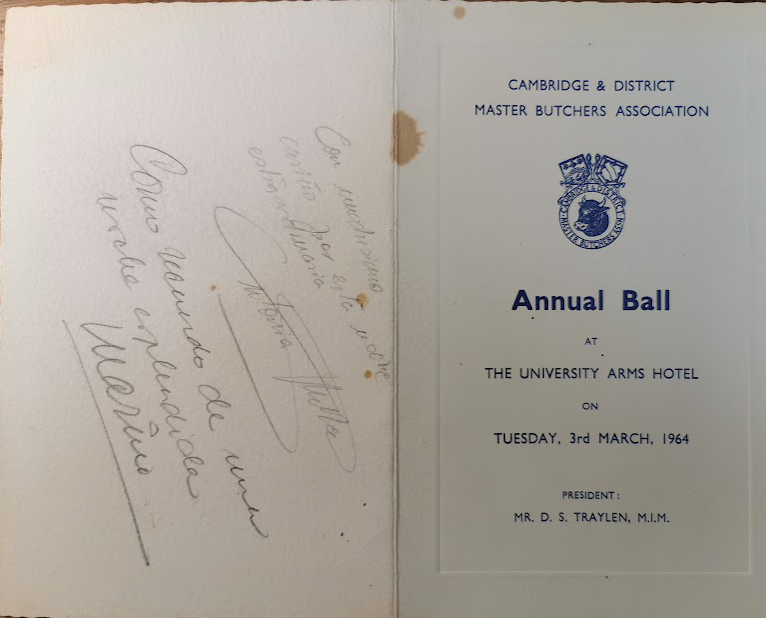 Con muchisimo
cariño por esta noche
extraordinaria
Como recuerdo de una
noche esplendida
Mariño
CAMBRIDGE & DISTRICT
MASTER BUTCHERS ASSOCIATION
CAMBRIDGE & DISTRICT
MASTER BUTCHERS ASSN
Annual Ball
AT
THE UNIVERSITY ARMS HOTEL
ON
TUESDAY, 3rd MARCH, 1964
PRESIDENT:
MR. D. S. TRAYLEN, M.I.M.